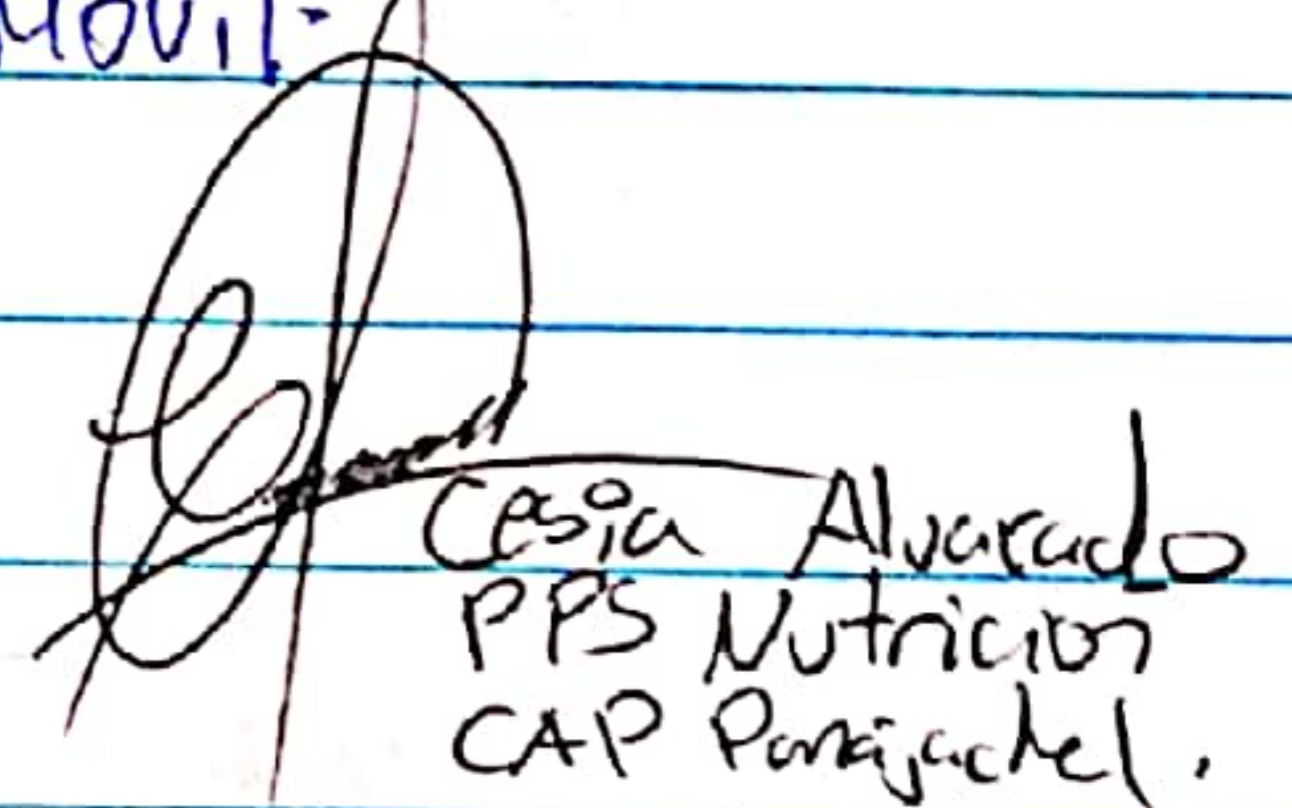 Móvil.
Cesia Alvarado
PPS Nutricion
CAP Panajachel.